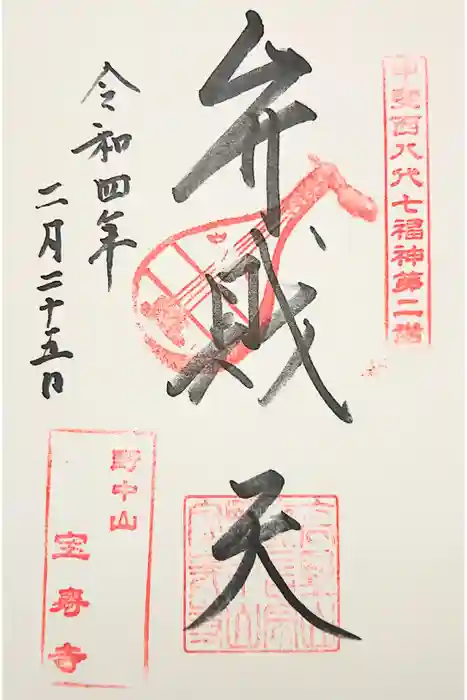 甲斐西八代七福神第二番
弁財天
令和四年
二月二十五日
野中山
宝寿寺